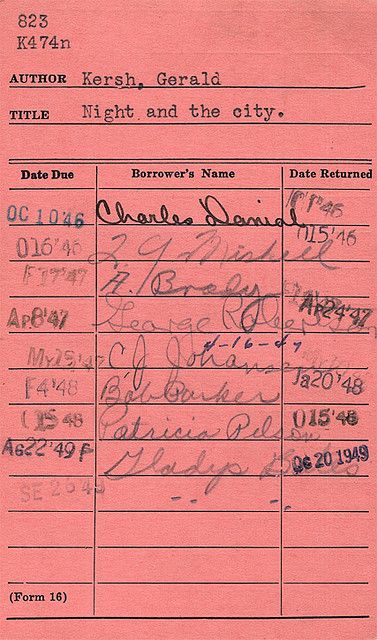 823
K474n
AUTHOR Kersh, Gerald
TITLE Night and the city.
Date Due Borrower's Name Date Returned
OC 10 '46 Charles Danial
O 16 '46 Mishell O 15 '46
F 17 '47 A. Brody
Ap 8 '47 George Ap 24 '47
4-16-47
My 15 '47 C J
F 4 '48 Bob Parker Ja 20 '48
O 15 48 Patricia O 15 '48
Ag 22 '49 F Gladys OC 20 1949
SE 26 49 " "
(Form 16)